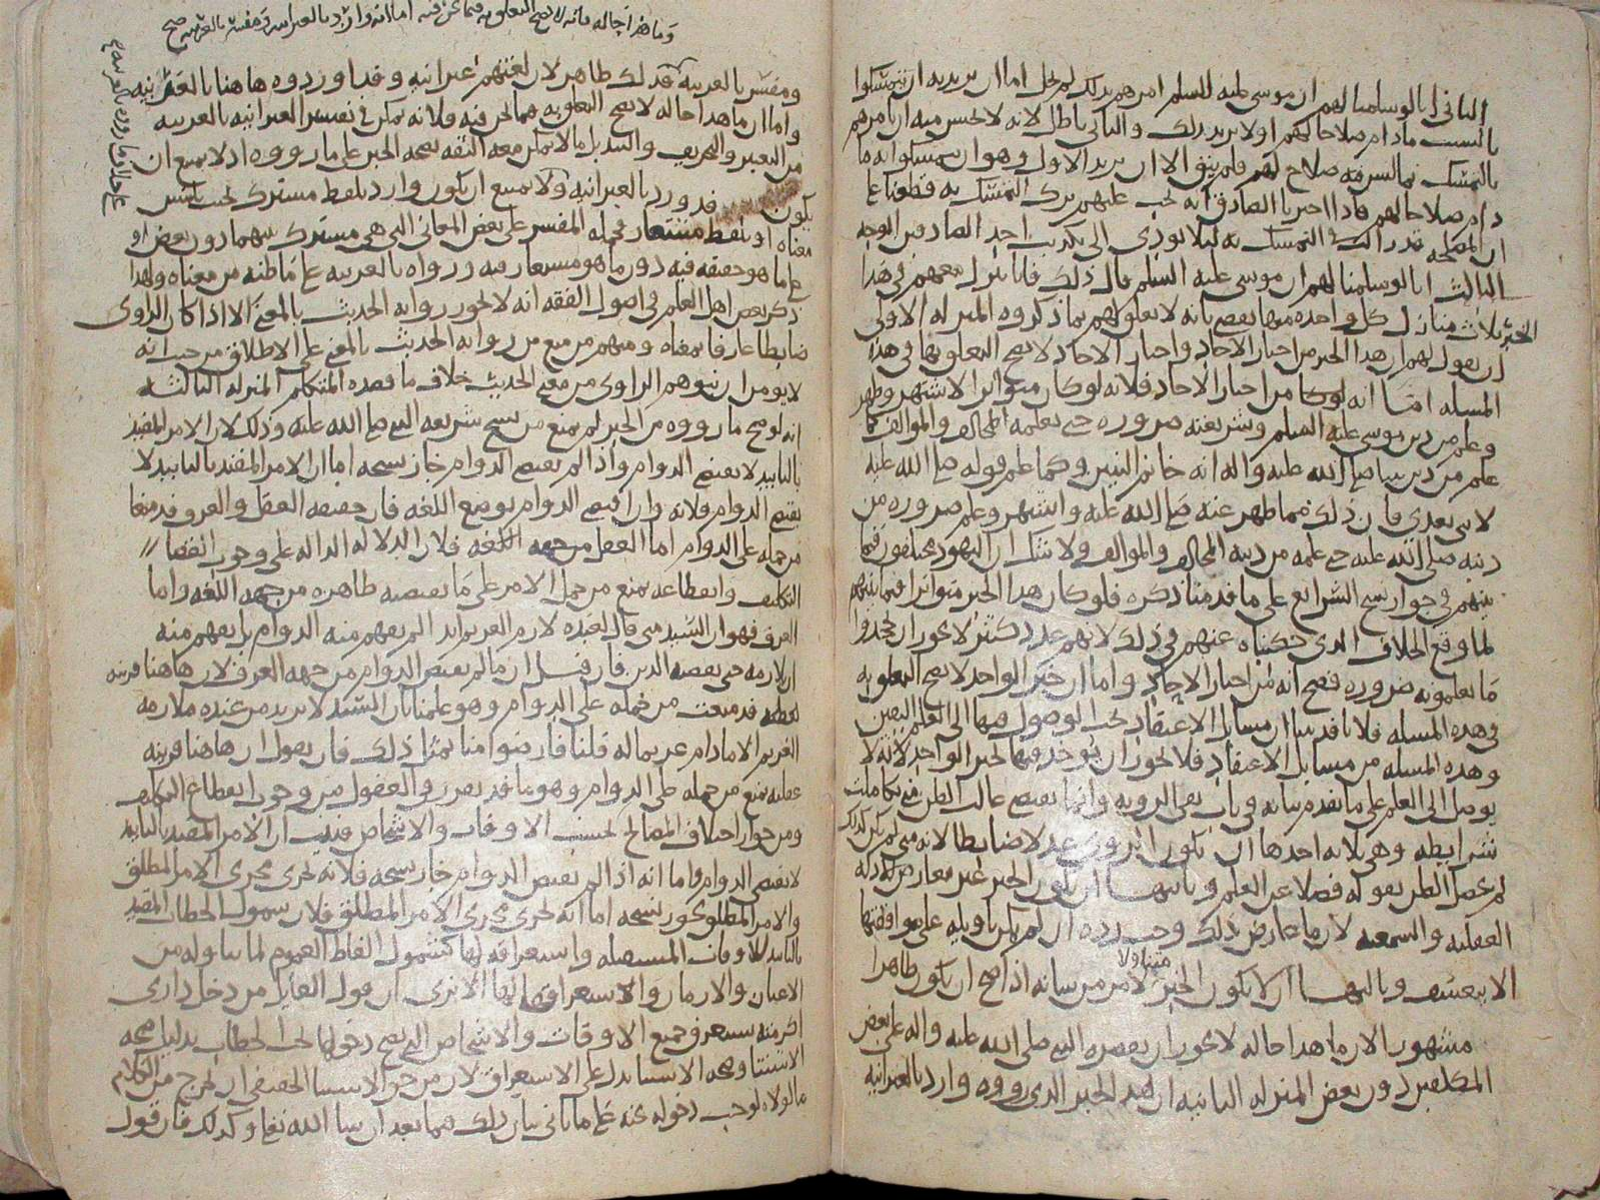 الثاني انا لو سلمنا لهم ان موسى عليه السلم امرهم بذلك لم يخل اما ان يريد به ان يتمسكوا
بالسبت مادام صلاحا لهم او لا يريد ذلك والثاني باطل لانه لا يحسن منه ان يامرهم
بالتمسك بما ليس فيه صلاح لهم فلم يبق الا ان يريد الاول وهو ان يتمسكوا به ما
دام صلاحا لهم فاذا اخبرنا الصادق انه يجب عليهم ترك التمسك به قطعنا على
ان المصلحة في التمسك به ليلا يودي الى تكذيب احد الصادقين الوجه
الثالث انا لو سلمنا لهم ان موسى عليه السلم قال ذلك فانا ننزل معهم في هذا
الخبر ثلاث منازل كل واحده منها يقضي بانه لا تعلق لهم بما ذكروه المنزله الاولى
ان يقول لهم ان هذا الخبر من اخبار الاحاد واخبار الاحاد لا يصح التعلق بها في هذه
المسله اما انه من اخبار الاحاد فلانه لو كان متواترا لاشتهر وظهر
وعلم من دين موسى عليه السلم وشريعته ضروره حتى يعلمه المخالف والموالف كما
علم من دين نبينا صلى الله عليه واله انه خاتم النبيين وكما علم قوله صلى الله عليه
لا نبي بعدي فان ذلك مما ظهر عنه صلى الله عليه واشتهر وعلم ضروره من
دينه صلى الله عليه حتى علمه من دينه المخالف والموالف ولا شك ان اليهود مختلفون فيما
بينهم في جواز نسخ الشرايع على ما قدمنا ذكره فلو كان هذا الخبر متواترا فيما بينهم
لما وقع الخلاف الذي حكيناه عنهم في ذلك لانهم عدد كثير لا يجوز ان يجحدوا
ما يعلمونه ضروره فصح انه من اخبار الاحاد واما ان خبر الواحد لا يصح التعلق به
في هذه المسله فلانا قد بينا ان مسايل الاعتقاد يجب الوصول فيها الى العلم اليقين
وهذه المسله من مسايل الاعتقاد فلا يجوز ان يوخذ فيها بخبر الواحد لانه لا
يوصل الى العلم على ما تقدم بيانه في باب نفي الرويه وانما يقتضي غالب الظن متى تكاملت
شرايطه وهي ثلاثه احدها ان يكون الراوي عدلا ضابطا لانه متى لم يكن كذلك
لم يحصل الظن بقوله فضلا عن العلم وثانيها ان يكون الخبر غير معارض للادله
العقليه والسمعيه لان ما عارض ذلك وجب رده ان لم يكن تاويله على موافقتها
الا بتعسف وثالثها ان لا يكون الخبر متناولا لامر من شانه اذا صح ان يكون ظاهرا
مشهورا لان ما هذا حاله لا يجوز ان يقصره النبي صلى الله عليه واله على بعض
المكلفين دون بعض المنزله الثانيه ان هذا الخبر الذي رووه وارد بالعبرانيه
وما هذا حاله فانه لا يصح التعلق به فيما نحن فيه اما انه وارد بالعبرانيه ومفسر بالعربيه صح
ومفسر بالعربيه فذلك ظاهر لان لغتهم عبرانيه وقد اوردوه هاهنا بالعربيه
واما ان ما هذا حاله لا يصح التعلق به فيما نحن فيه فلانه يمكن في تفسير العبرانيه بالعربيه
من التغيير والتحريف والتبديل ما لا يمكن معه الثقه بصحه الخبر على ما رووه اذ لا يمتنع ان
يكون قد ورد بالعبرانيه ولا يمتنع ان يكون وارد بلفظ مشترك
معناه او بلفظ مستعار فحمله المفسر على بعض المعاني التي هي مشترك بينها دون بعض او
على ما هو حقيقه فيه دون ما هو مستعار فيه ورواه بالعربيه على ما ظنه من معناه ولهذا
ذكر بعض اهل العلم في اصول الفقه انه لا يجوز روايه الحديث بالمعنى الا اذا كان الراوي
ضابطا عارفا بمعناه ومنهم من منع من روايه الحديث بالمعنى على الاطلاق من حيث انه
لا يومن ان يتوهم الراوي من معنى الحديث خلاف ما قصده المتكلم المنزله الثالثه
انه لو صح ما رووه من الخبر لم يمنع من نسخ شريعه النبي صلى الله عليه وذلك لان الامر المقيد
بالتابيد لا يقتضي الدوام واذا لم يقتضي الدوام جاز نسخه اما ان الامر المقيد بالتابيد لا
يقتضي الدوام فلانه وان اقتضى الدوام بوضع اللغه فان العقل والعرف قد منعا
من حمله على الدوام اما العقل فلان الدلاله الداله على وجوب انقضا
التكليف وانقطاعه يمنع من حمل الامر على ما يقتضيه ظاهره من جهه اللغه واما
العرف فهو ان السيد متى قال لعبده لازم الغريم ابدا لم يفهم منه الدوام بل يفهم منه
ان يلازمه حتى يقضيه الدين فان قيل ان ما لم يقتض الدوام من جهه العرف لان هاهنا قرينه
لفظيه قد منعت من حمله على الدوام وهو علمنا بان السيد لا يريد من عبده ملازمه
الغريم الا مادام غريما له قلنا فارضوا منا بمثل ذلك فان نقول ان هاهنا قرينه
عقليه تمنع من حمله على الدوام وهو ما قد تقرر في العقول من وجوب انقطاع التكليف
ومن جواز اختلاف المصالح بحسب الاوقات والاشخاص فثبت ان الامر المقيد بالتابيد
لا يقتضي الدوام واما انه اذا لم يقتض الدوام جاز نسخه فلانه يجري مجرى الامر المطلق
والامر المطلق يجوز نسخه اما انه يجري مجرى الامر المطلق فلان شمول الخطاب المقيد
بالتابيد للاوقات المستقبله واستغراقه لها كشمول الفاظ العموم لما تناوله من
الاعيان والازمان والاستغراق لها الا ترى ان قول القايل من دخل داري
اكرمته يستغرق جميع الاوقات والاشخاص التي يصح دخولها تحت الخطاب بدليل صحه
الاستثنا وصحه الاستثنا يدل على الاستغراق لان من حق الاستثنا الحقيقي ان يخرج من الكلام
ما لولاه لوجب دخوله تحته على ما ياتي بيان ذلك فيما بعد ان شا الله تعالى وكذلك فان قول